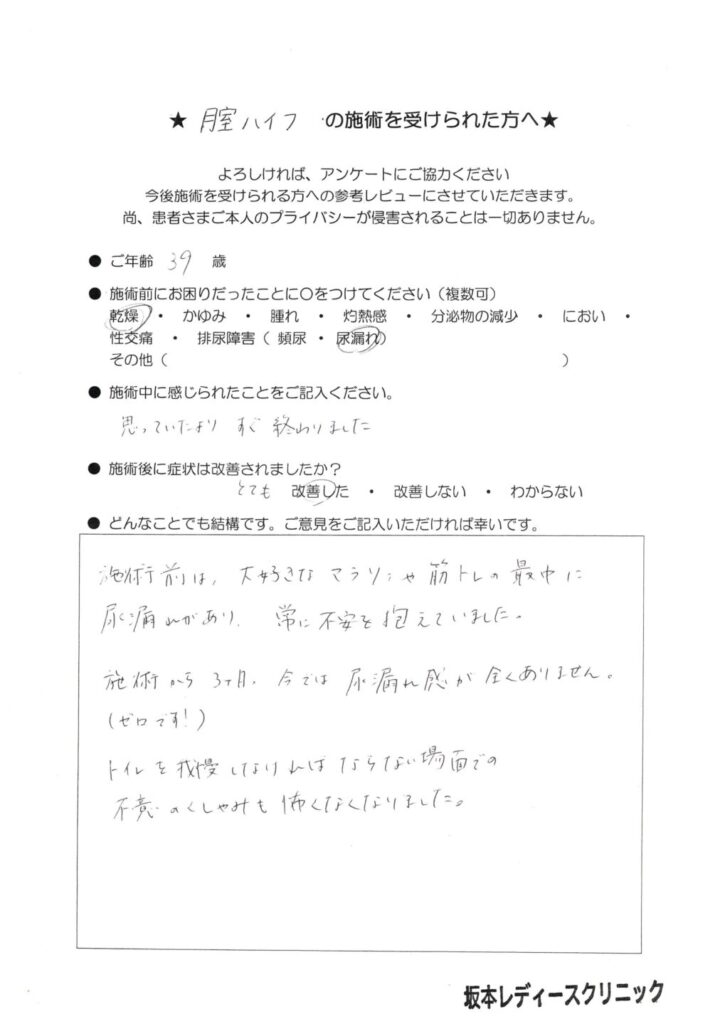 ★ 膣ハイフ の施術を受けられた方へ★
よろしければ、アンケートにご協力ください
今後施術を受けられる方への参考レビューにさせていただきます。
尚、患者さまご本人のプライバシーが侵害されることは一切ありません。
● ご年齢 39 歳
● 施術前にお困りだったことに〇をつけてください（複数可）
乾燥 ・ かゆみ ・ 腫れ ・ 灼熱感 ・ 分泌物の減少 ・ におい ・
性交痛 ・ 排尿障害（ 頻尿 ・ 尿漏れ）
その他（ ）
● 施術中に感じられたことをご記入ください。
思っていたより すぐ 終わりました
● 施術後に症状は改善されましたか？
とても 改善した ・ 改善しない ・ わからない
● どんなことでも結構です。ご意見をご記入いただければ幸いです。
施術前は、大好きなマラソンや筋トレの最中に
尿漏れがあり、常に不安を抱えていました。
施術から3ヶ月、今では尿漏れ感が全くありません。
（ゼロです!）
トイレを我慢しなければならない場面での
不意のくしゃみも怖くなくなりました。
坂本レディースクリニック